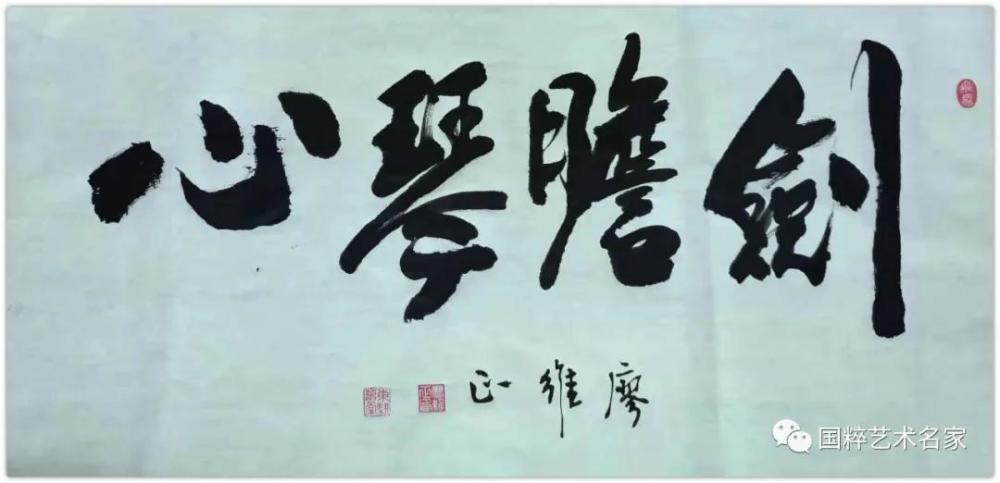 劍膽琴心
廖維正
国粹艺术名家